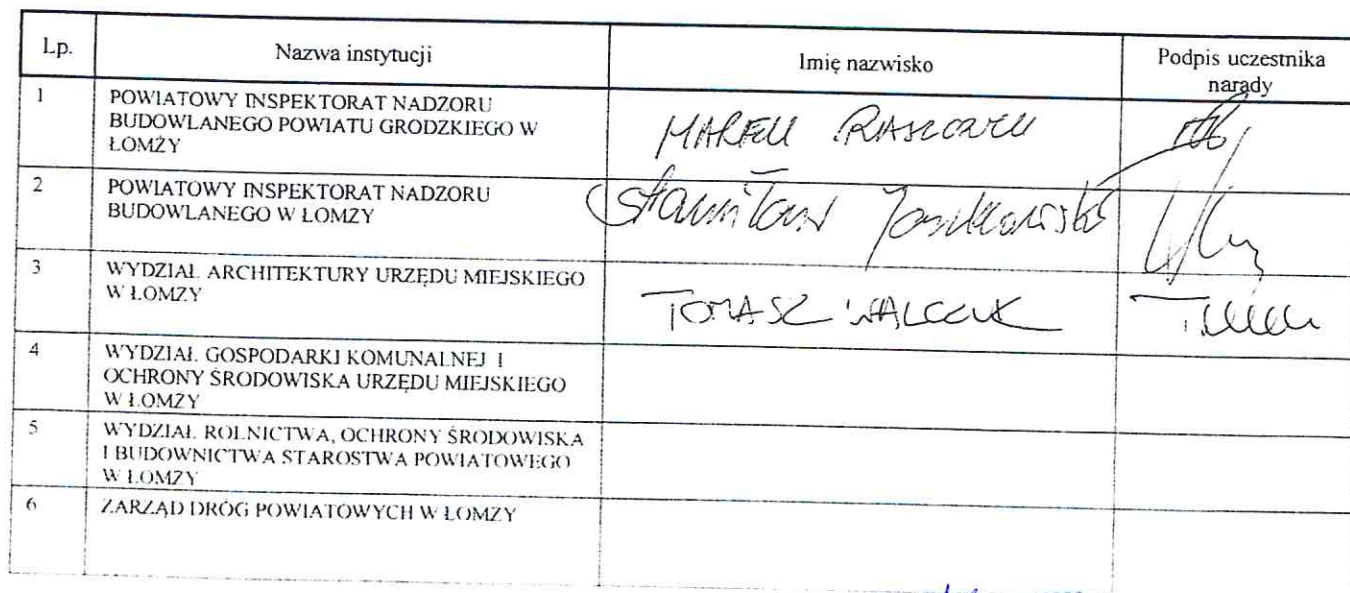 Lp. Nazwa instytucji Imię nazwisko Podpis uczestnika
narady
1 POWIATOWY INSPEKTORAT NADZORU
BUDOWLANEGO POWIATU GRODZKIEGO W
ŁOMŻY
MAREK
2 POWIATOWY INSPEKTORAT NADZORU
BUDOWLANEGO W ŁOMŻY
Stanisław Jankowski
3 WYDZIAŁ ARCHITEKTURY URZĘDU MIEJSKIEGO
W ŁOMŻY
TOMASZ WALCZUK
4 WYDZIAŁ GOSPODARKI KOMUNALNEJ I
OCHRONY ŚRODOWISKA URZĘDU MIEJSKIEGO
W ŁOMŻY
5 WYDZIAŁ ROLNICTWA, OCHRONY ŚRODOWISKA
I BUDOWNICTWA STAROSTWA POWIATOWEGO
W ŁOMŻY
6 ZARZĄD DRÓG POWIATOWYCH W ŁOMŻY